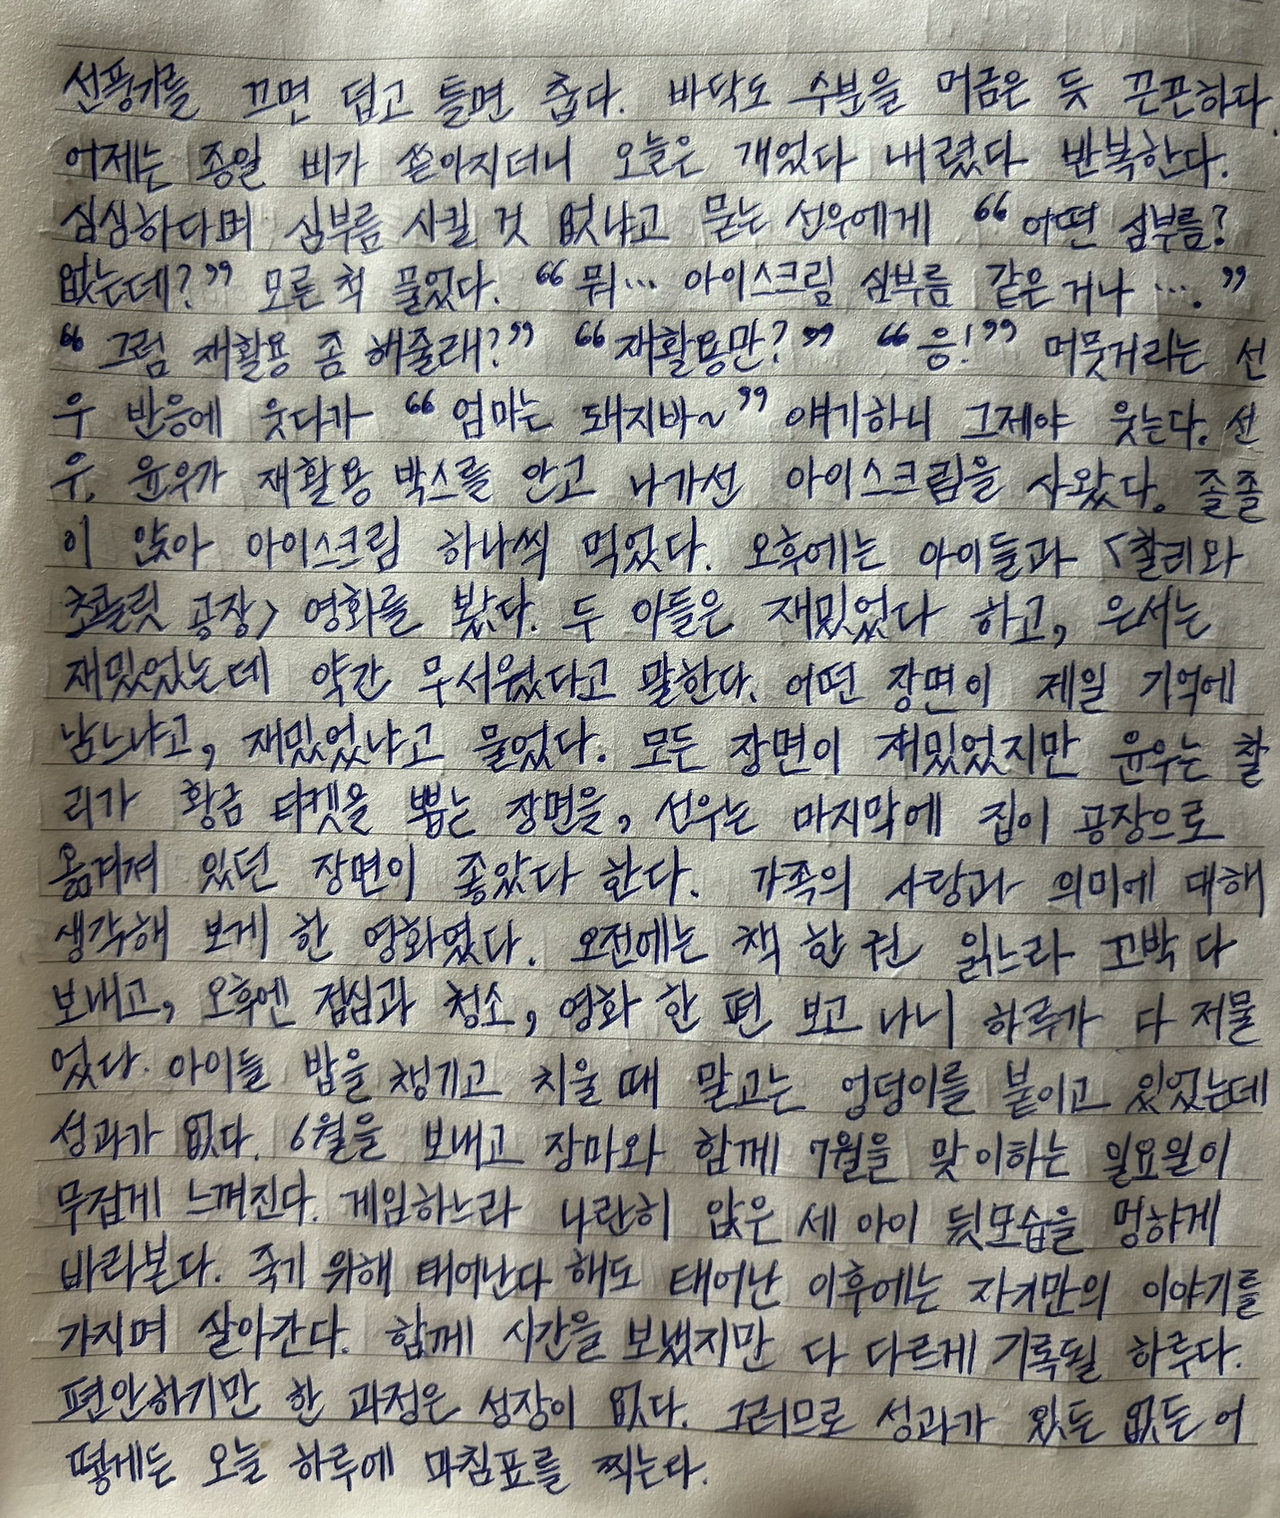 선풍기를 끄면 덥고 틀면 춥다. 바닥도 수분을 머금은 듯 끈끈하다.
어제는 종일 비가 쏟아지더니 오늘은 개었다 내렸다 반복한다.
심심하다며 심부름 시킬 것 없냐고 묻는 선우에게 “어떤 심부름?
없는데?” 모른 척 물었다. “뭐… 아이스크림 심부름 같은거나 ….”
“그럼 재활용 좀 해줄래?” “재활용만?” “응!” 머뭇거리는 선
우 반응에 웃다가 “엄마는 돼지바~” 얘기하니 그제야 웃는다. 선
우, 윤우가 재활용 박스를 안고 나가선 아이스크림을 사왔다. 졸졸
이 앉아 아이스크림 하나씩 먹었다. 오후에는 아이들과 <찰리와
초콜릿 공장> 영화를 봤다. 두 아들은 재밌었다 하고, 은서는
재밌었는데 약간 무서웠다고 말한다. 어떤 장면이 제일 기억에
남느냐고, 재밌었냐고 물었다. 모든 장면이 재밌었지만 윤우는 찰
리가 황금 티켓을 뽑는 장면을, 선우는 마지막에 집이 공장으로
옮겨져 있던 장면이 좋았다 한다. 가족의 사랑과 의미에 대해
생각해 보게 한 영화였다. 오전에는 책 한 권 읽느라 꼬박 다
보내고, 오후엔 점심과 청소, 영화 한 편 보고 나니 하루가 다 저물
었다. 아이들 밥을 챙기고 치울 때 말고는 엉덩이를 붙이고 있었는데
성과가 없다. 6월을 보내고 장마와 함께 7월을 맞이하는 일요일이
무겁게 느껴진다. 게임하느라 나란히 앉은 세 아이 뒷모습을 멍하게
바라본다. 죽기 위해 태어난다 해도 태어난 이후에는 자기만의 이야기를
가지며 살아간다. 함께 시간을 보냈지만 다 다르게 기록될 하루다.
편안하기만 한 과정은 성장이 없다. 그러므로 성과가 있든 없든 어
떻게든 오늘 하루에 마침표를 찍는다.